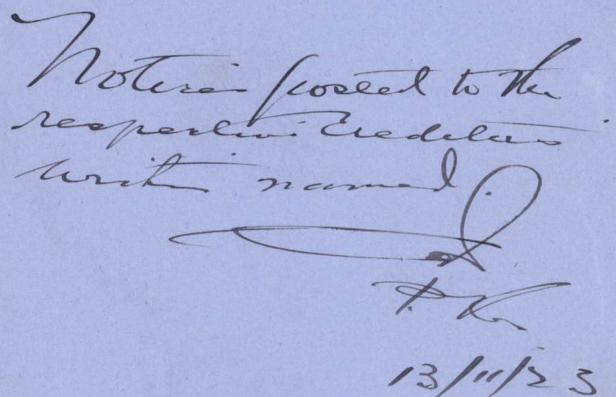 Notices posted to the
respective Creditors
within named.
13/11/23